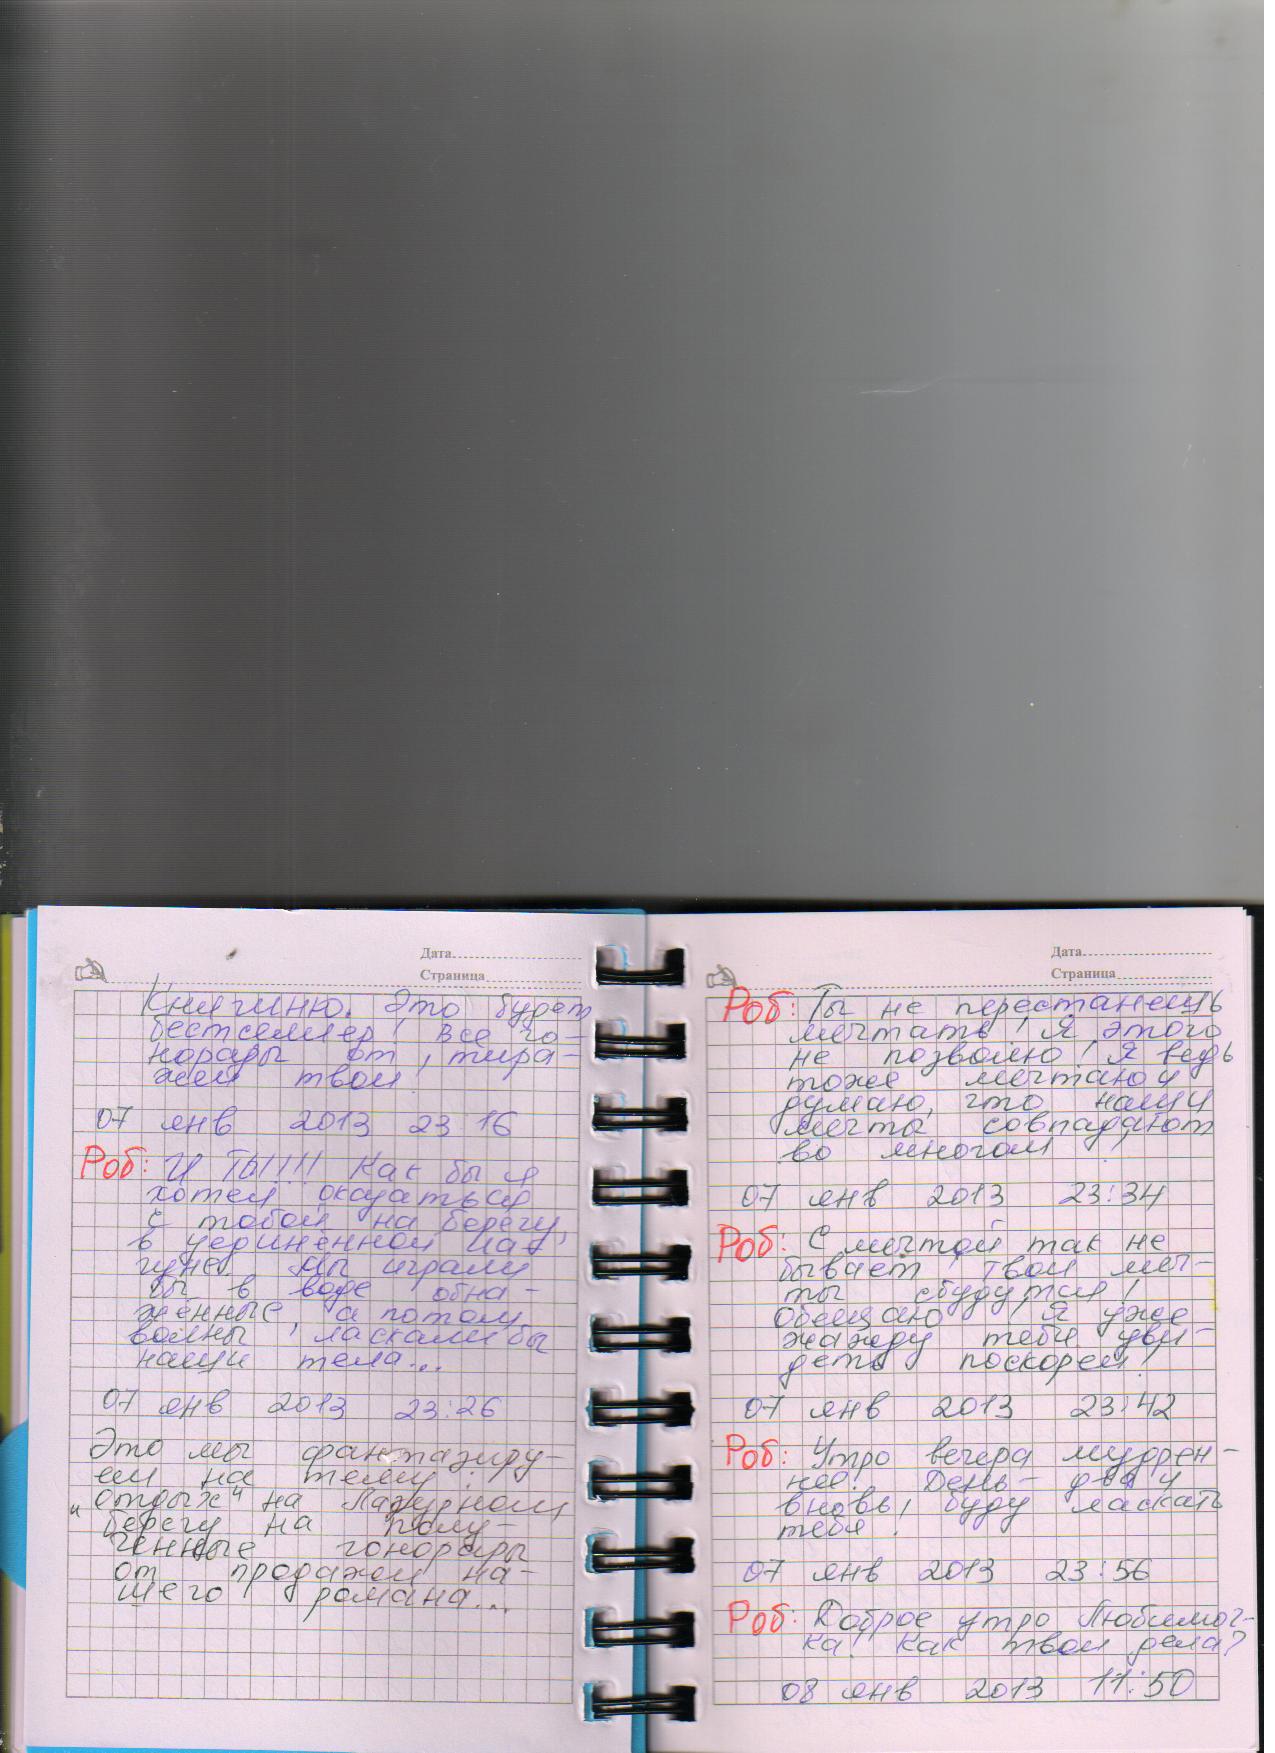 Дата
Страница
Княгиню. Это будет
бестселлер! Все го-
норары от тира-
жей твои!
07 янв 2013 23 16
Роб: И ТЫ!!!! Как бы я
хотел оказаться
с тобой на берегу,
в уединённой ла-
гуне. Мы играли
бы в воде обна-
жённые, а потом
волны ласкали бы
наши тела...
07 янв 2013 23:26
Это мы фантазиру-
ем на тему:
"отдых" на Лазурном
берегу на полу-
ченные гонорары
от продажи на-
шего романа...
Дата
Страница
Роб: Ты не перестанешь
мечтать! Я этого
не позволю! Я ведь
тоже мечтаю и
думаю, что наши
мечты совпадают
во многом!
07 янв 2013 23:34
Роб: С мечтой так не
бывает! Твои меч-
ты сбудутся!
Обещаю! Я уже
жажду тебя уви-
деть поскорей!
07 янв 2013 23:42
Роб: Утро вечера мудрен-
нее! День - два и
вновь буду ласкать
тебя!
07 янв 2013 23:56
Роб: Доброе утро Любимоч-
ка! Как твои дела?
08 янв 2013 11:50